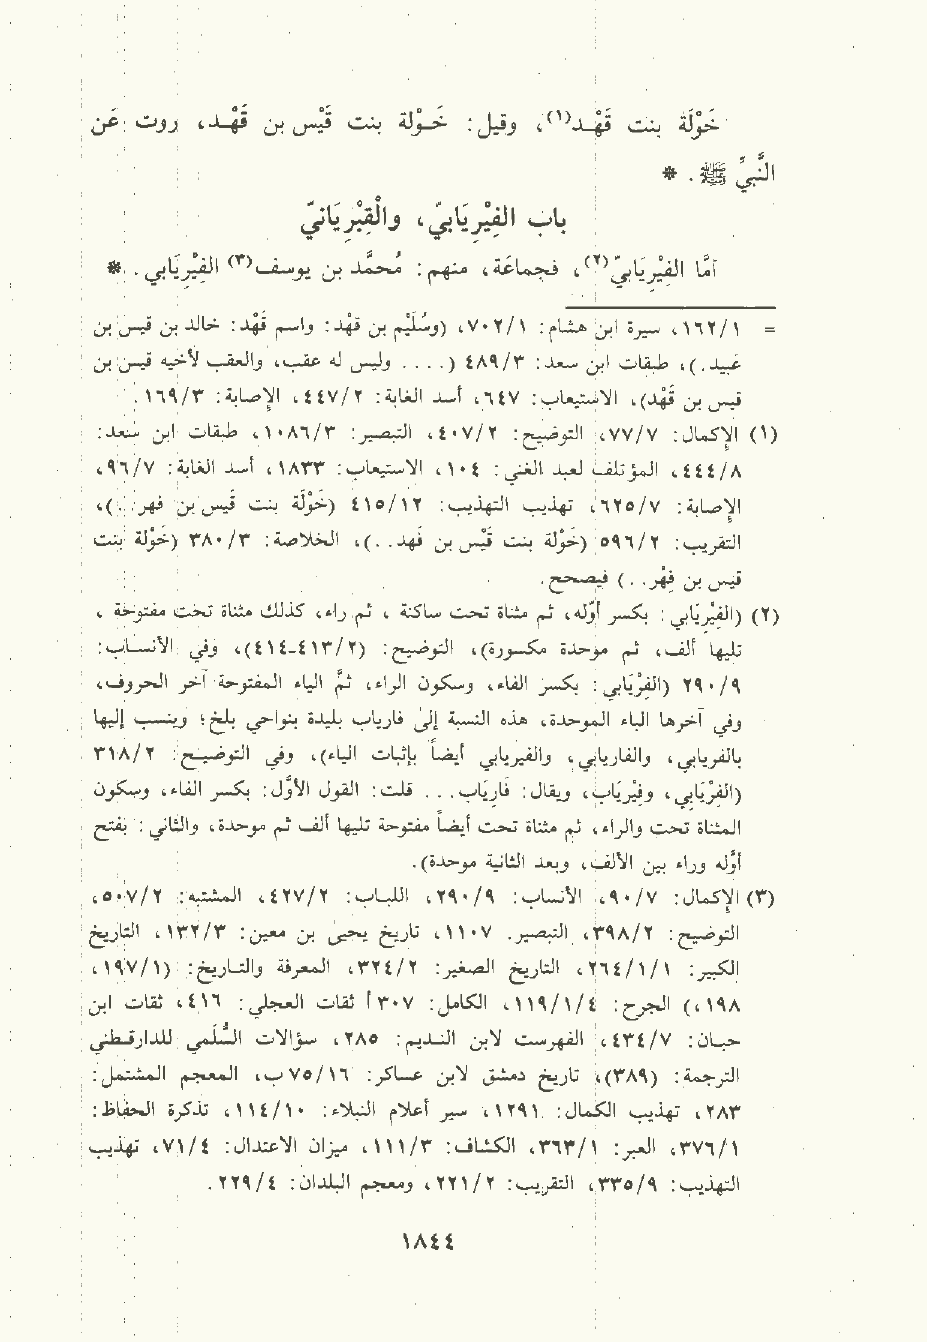 خَوْلَة بنت قَهْـد(١)، وقيل: خَـوْلة بنت قَيْس بن قَهْـد، روت عَن
النَّبيِّ ﷺ. *
باب الفِيْرِيَابيّ، والْقِبْرِيَانيّ
أمَّا الفِيْرِيَابيّ(٢)، فجماعَة، منهم: مُحمَّد بن يوسف(٣) الفِيْرِيَابي. *
= ١/ ١٦٢، سيرة ابن هشام: ١/ ٧٠٢، (وسُلَيْم بن قهْد: واسم قَهْد: خالد بن قيس بن
عَبيد.)، طبقات ابن سعد: ٣/ ٤٨٩ (.... وليس له عقب، والعقب لأخيه قيس بن
قيس بن قَهْد)، الاستيعاب: ٦٤٧، أسد الغابة: ٢/ ٤٤٧، الإصابة: ٣/ ١٦٩.
(١) الإكمال: ٧/ ٧٧، التوضيح: ٢/ ٤٠٧، التبصير: ٣/ ١٠٨٦، طبقات ابن سعد:
٨/ ٤٤٤، المؤتلف لعبد الغني: ١٠٤، الاستيعاب: ١٨٣٣، أسد الغابة: ٧/ ٩٦،
الإصابة: ٧/ ٦٢٥، تهذيب التهذيب: ١٢/ ٤١٥ (خَوْلَة بنت قَيس بن فهر..)،
التقريب: ٢/ ٥٩٦ (خَوْلة بنت قَيْس بن فَهد..)، الخلاصة: ٣/ ٣٨٠ (خَوْلة بنت
قيس بن فِهْر..) فيصحح.
(٢) (الفِيْرِيَابي: بكسر أوّله، ثم مثناة تحت ساكنة ، ثم راء، كذلك مثناة تحت مفتوحة ،
تليها ألف، ثم موحدة مكسورة)، التوضيح: (٢/ ٤١٣-٤١٤)، وفي الأنسـاب:
٩/ ٢٩٠ (الفِرْيَابي: بكسر الفاء، وسكون الراء، ثمَّ الياء المفتوحة آخر الحروف،
وفي آخرها الباء الموحدة، هذه النسبة إلىٰ فارياب بليدة بنواحي بلخ؛ وينسب إليها
بالفريابي، والفاريابي، والفيريابي أيضاً بإثبات الياء)، وفي التوضيـح: ٢/ ٣١٨
(الفِرْيَابي، وفِيْرَيَاب، ويقال: فَارِيَاب... قلت: القول الأوَّل: بكسر الفاء، وسكون
المثناة تحت والراء، ثم مثناة تحت أيضاً مفتوحة تليها ألف ثم موحدة، والثاني: بفتح
أوَّله وراء بين الألف، وبعد الثانية موحدة).
(٣) الإكمال: ٧/ ٩٠، الأنساب: ٩/ ٢٩٠، اللبـاب: ٢/ ٤٢٧، المشتبه: ٢/ ٥٠٧،
التوضيح: ٢/ ٣٩٨، التبصير. ١١٠٧، تاريخ يحيىٰ بن معين: ٣/ ١٣٢، التاريخ
الكبير: ١/ ١/ ٢٦٤، التاريخ الصغير: ٢/ ٣٢٤، المعرفة والتـاريخ: (١/ ١٩٧،
١٩٨،) الجرح: ٤/ ١/ ١١٩، الكامل: ٣٠٧ أ ثقات العجلي: ٤١٦، ثقات ابن
حبـان: ٧/ ٤٣٤، الفهرست لابن النـديم: ٢٨٥، سؤالات السُّلَمي للدارقـطني
الترجمة: (٣٨٩)، تاريخ دمشق لابن عساكر: ١٦/ ٧٥ب، المعجم المشتمل:
٢٨٣، تهذيب الكمال: ١٢٩١. سير أعلام النبلاء: ١٠/ ١١٤، تذكرة الحفاظ:
١/ ٣٧٦، العبر: ١/ ٣٦٣، الكشاف: ٣/ ١١١، ميزان الاعتدال: ٤/ ٧١، تهذيب
التهذيب: ٩/ ٣٣٥، التقريب: ٢/ ٢٢١، ومعجم البلدان: ٤/ ٢٢٩.
١٨٤٤